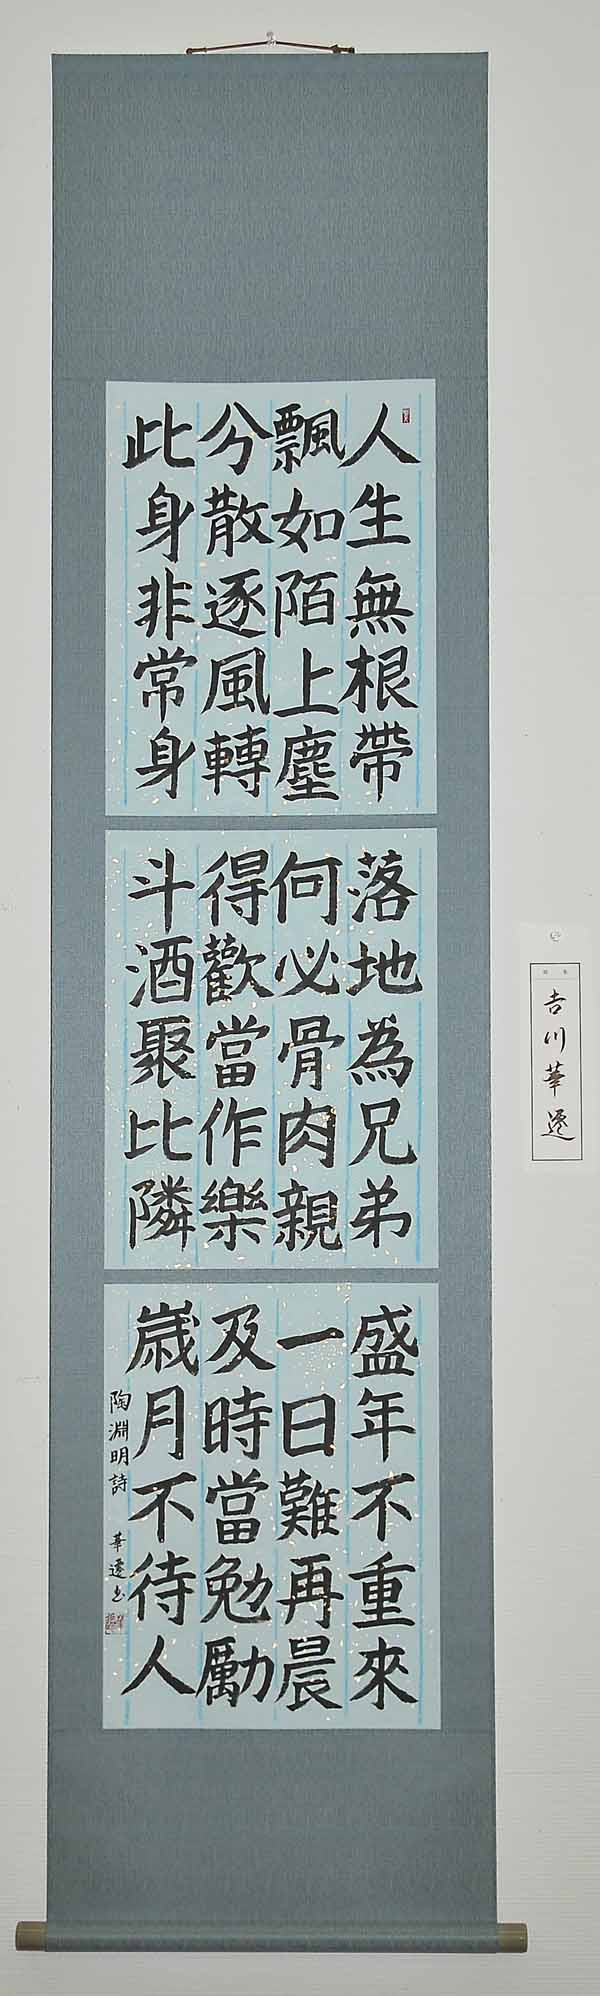 人生無根帶
飄如陌上塵
分散逐風轉
此身非常身
落地為兄弟
何必骨肉親
得歡當作樂
斗酒聚比隣
盛年不重來
一日難再晨
及時當勉勵
歳月不待人
陶淵明詩 華書
吉川華